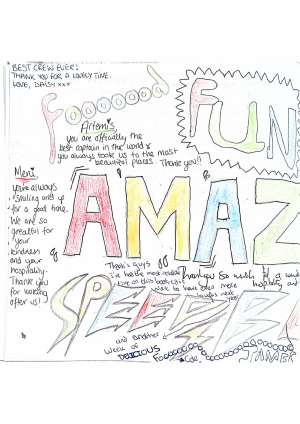 BEST CREW EVER!
THANK YOU FOR A LOVELY TIME.
LOVE, DAISY xxx
Fooooood
FUN
Artemis,
you are officially the
best captain in the world &
you always took us to the most
beautiful places. Thank you!!
Meni,
you're always
smiling and up
for a good time.
We are so
greatful for
your
kindness
and your
hospitality.
Thank you
for looking
after us!
AMAZ
Thanks guys
I've had the most
time on this boat
Thank you so much for a
hospitality and
SPEEDB
and another
week of
DELICIOUS
SUMMER